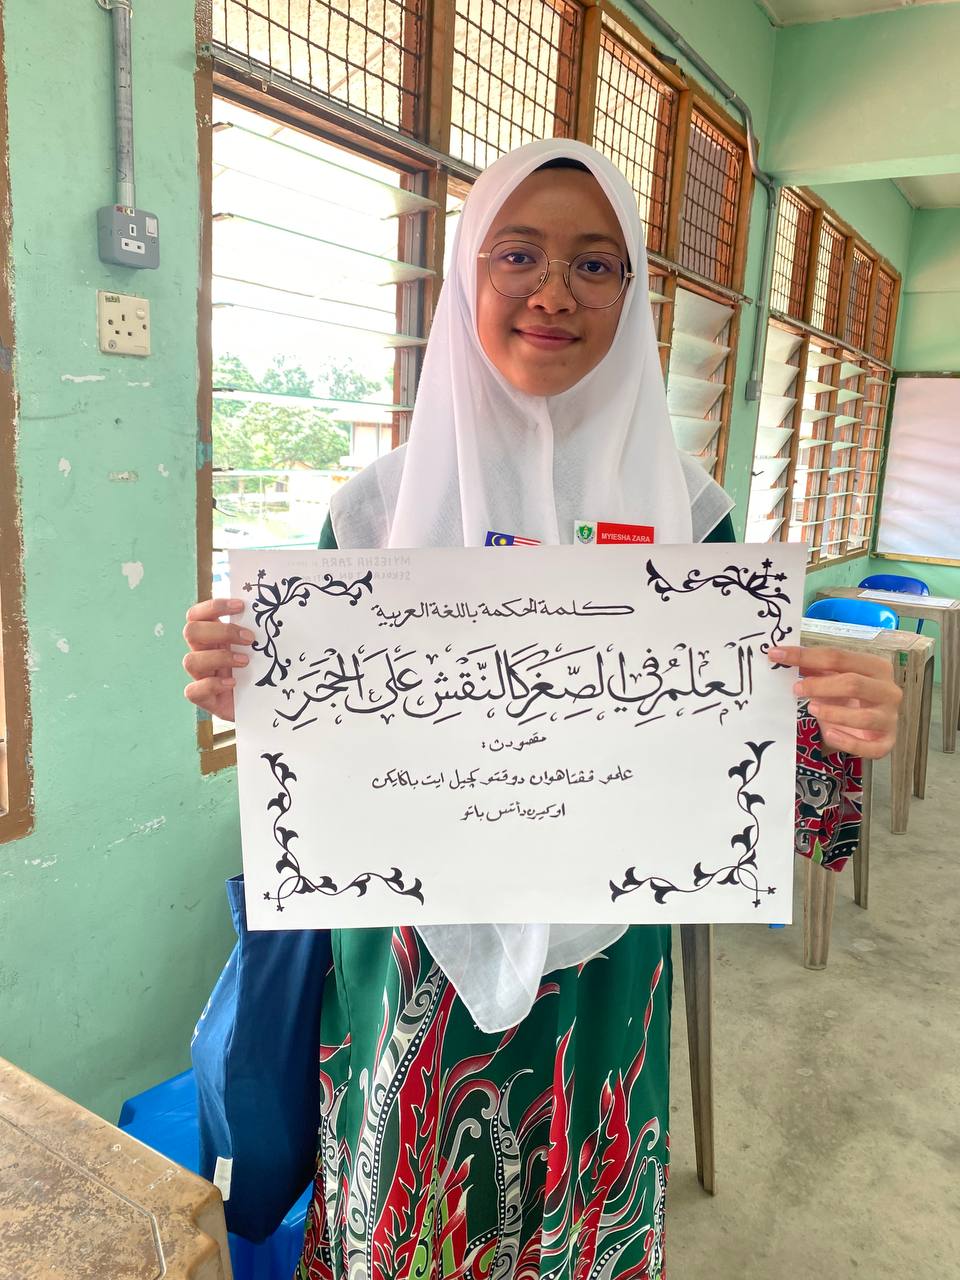 MYIESHA ZARA
MYIESHA ZARA
كلمة الحكمة باللغة العربية
اَلْعِلْمُ فِي الصِّغَرِ كَالنَّقْشِ عَلَى الْحَجَرِ
مقصودڽ:
علمو ڤڠتاهوان دوقتو كچيل ايت باڬايكن
اوكيرن دأتس باتو